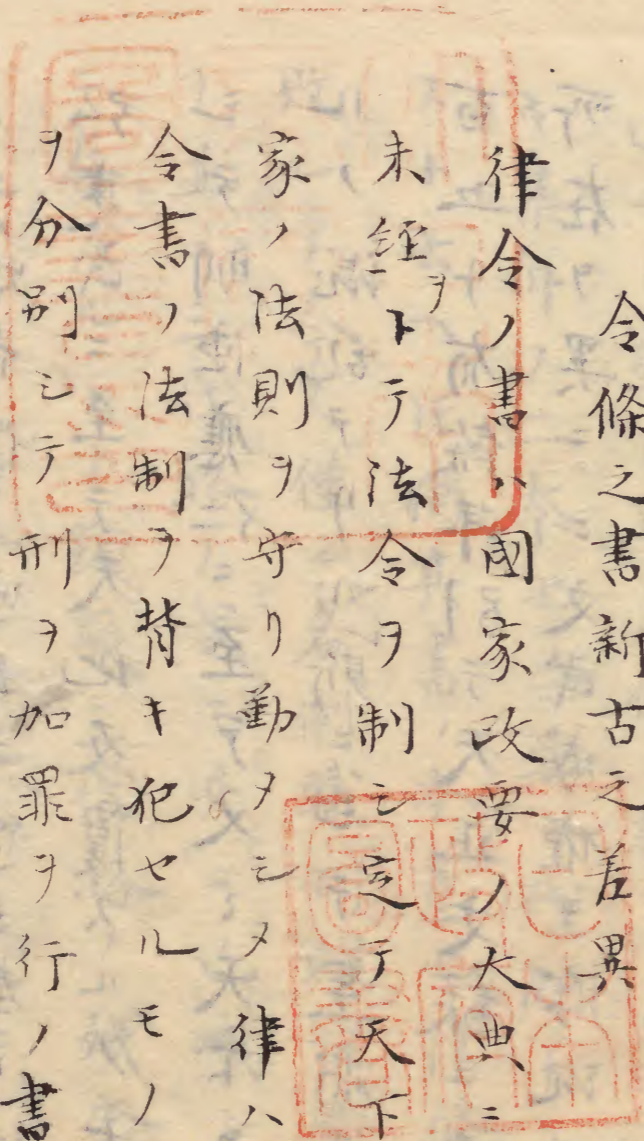 令條之書新古之差異
律令ノ書ハ國家政要ノ大典ニ
未經ヲトテ法令ヲ制シ定テ天下
家ノ法則ヲ守リ勤メシメ律ハ
令書ノ法制ヲ背キ犯セルモノ
ヲ分別シテ刑ヲ加罪ヲ行ノ書